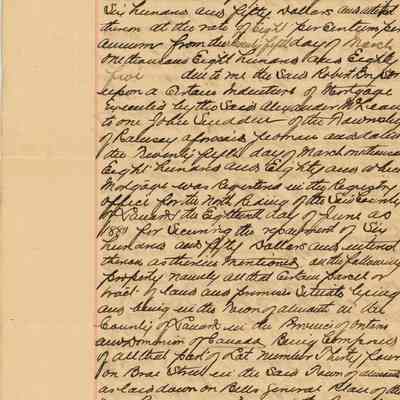 Six hundred and fifty Dollars and interest
thereon at the rate of eight per centum per
annum from the twenty fifth day of March
one thousand Eight hundred and Eighty
five due to me the said Robert
upon a Certain Indenture of Mortgage
Executed by the said Alexander McLean
to one John Scudder of the Township
of Ramsay aforesaid yeoman and dated
the Twenty fifth day of March one thousand
Eight hundred and Eighty and which
Mortgage was Registered in the Registry
office for the North Riding of the said County
of Lanark the Eighteenth day of June AD
1880 for securing the repayment of Six
hundred and fifty Dollars and interest
thereon as therein mentioned on the following
property namely all that certain parcel or
tract of land and premises situate lying
and being in the Town of Almonte in the
County of Lanark in the Province of Ontario
and Dominion of Canada Being Composed
of all that part of Lot number Thirty four
on Brae Street in the said Town of Almonte
as laid down on Bells General Plan of the